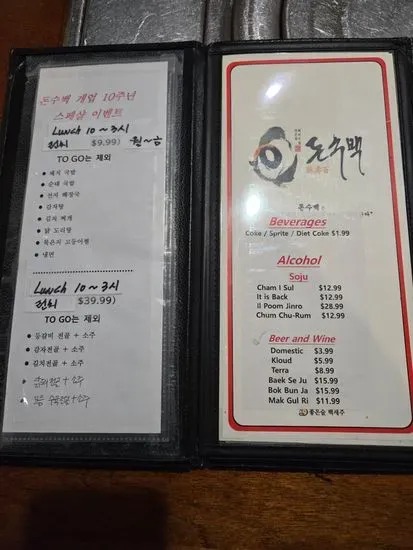 돈수백 개업 10주년
스페샬 이벤트
Lunch 10 ~ 3시
런치 $9.99) 월~금
TO GO는 제외
• 돼지 국밥
• 순대 국밥
• 선지 해장국
• 감자탕
• 김치 찌개
• 닭 도리탕
• 묵은지 고등어찜
• 냉면
Lunch 10 ~ 3시
런치 $39.99)
TO GO는 제외
• 등갈비 전골 + 소주
• 감자전골 + 소주
• 김치전골 + 소주
돈수백
돈수백
Beverages
Coke / Sprite / Diet Coke $1.99
Alcohol
Soju
Cham I Sul $12.99
It is Back $12.99
Il Poom Jinro $28.99
Chum Chu-Rum $12.99
Beer and Wine
Domestic $3.99
Kloud $5.99
Terra $8.99
Baek Se Ju $15.99
Bok Bun Ja $15.99
Mak Gul Ri $11.99
좋은술 백세주